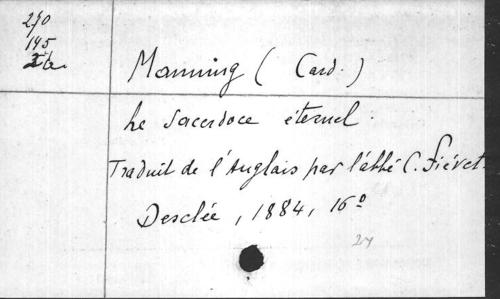 270
145
Manning ( Card. )
Le Sacerdoce éternel.
Traduit de l'Anglais par l'abbé C. Fiévet.
Desclée, 1884, 16º
27